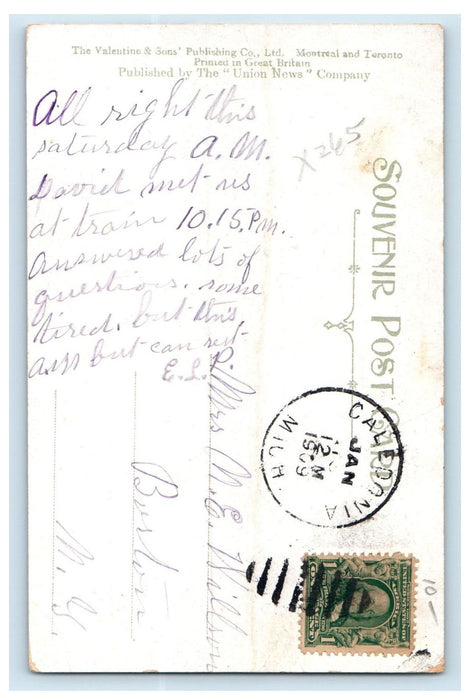 The Valentine & Sons' Publishing Co., Ltd. Montreal and Toronto
Printed in Great Britain
Published by The "Union News" Company
All right this
saturday A.M.
David met us
at train 10.15.P.m.
answered lots of
questions. some
tired. but this
a.m but can rest
E.L.P.
X265
SOUVENIR POST CARD
CALEDONIA
JAN
12 M
1909
MICH
Mrs N.E. Willson
Boston
N.Y.
1
1
10-